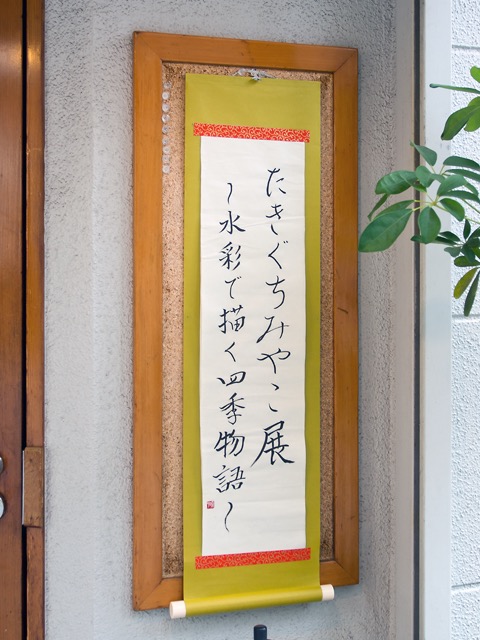 たきぐちみやこ展
~水彩で描く四季物語~